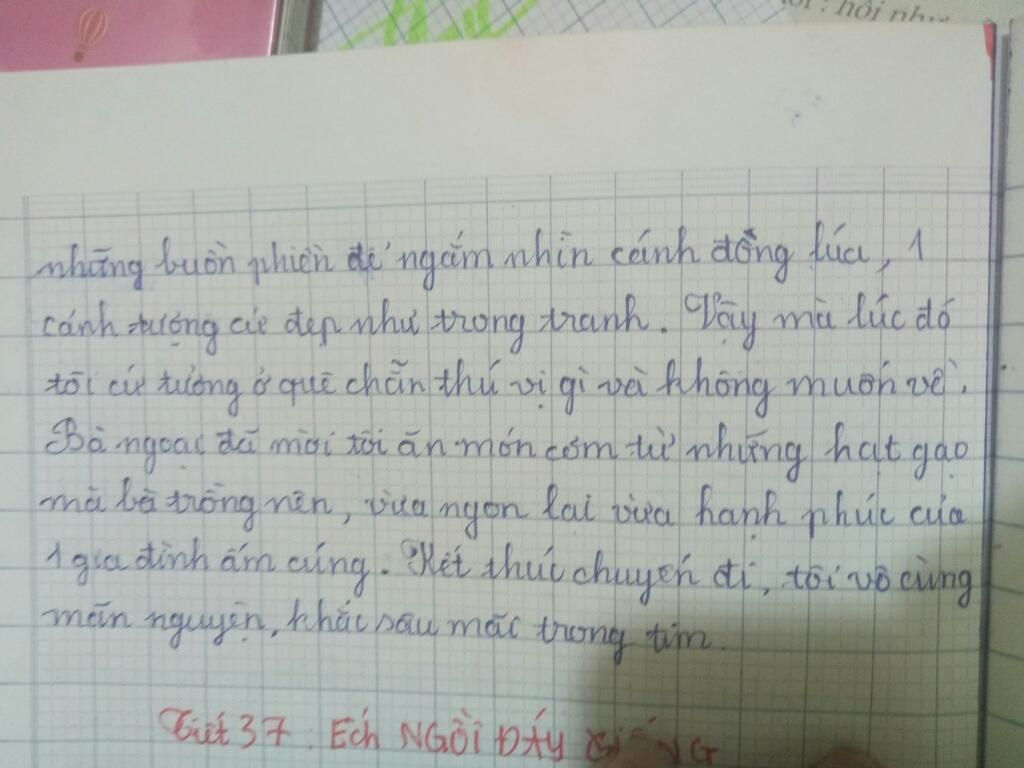 ơi : hồi như
những buồn phiền để ngắm nhìn cánh đồng lúa, 1
cảnh tượng cực đẹp như trong tranh. Vậy mà lúc đó
tôi cứ tưởng ở quê chẵn thú vị gì và không muốn về.
Bà ngoại đã mời tôi ăn món cơm từ những hạt gạo
mà bà trồng nên, vừa ngon lại vừa hạnh phúc của
1 gia đình ấm cúng. Kết thúc chuyến đi, tôi vô cùng
mãn nguyện, khắc sâu mãi trong tim.
Tiết 37: ẾCH NGỒI ĐÁY GIẾNG